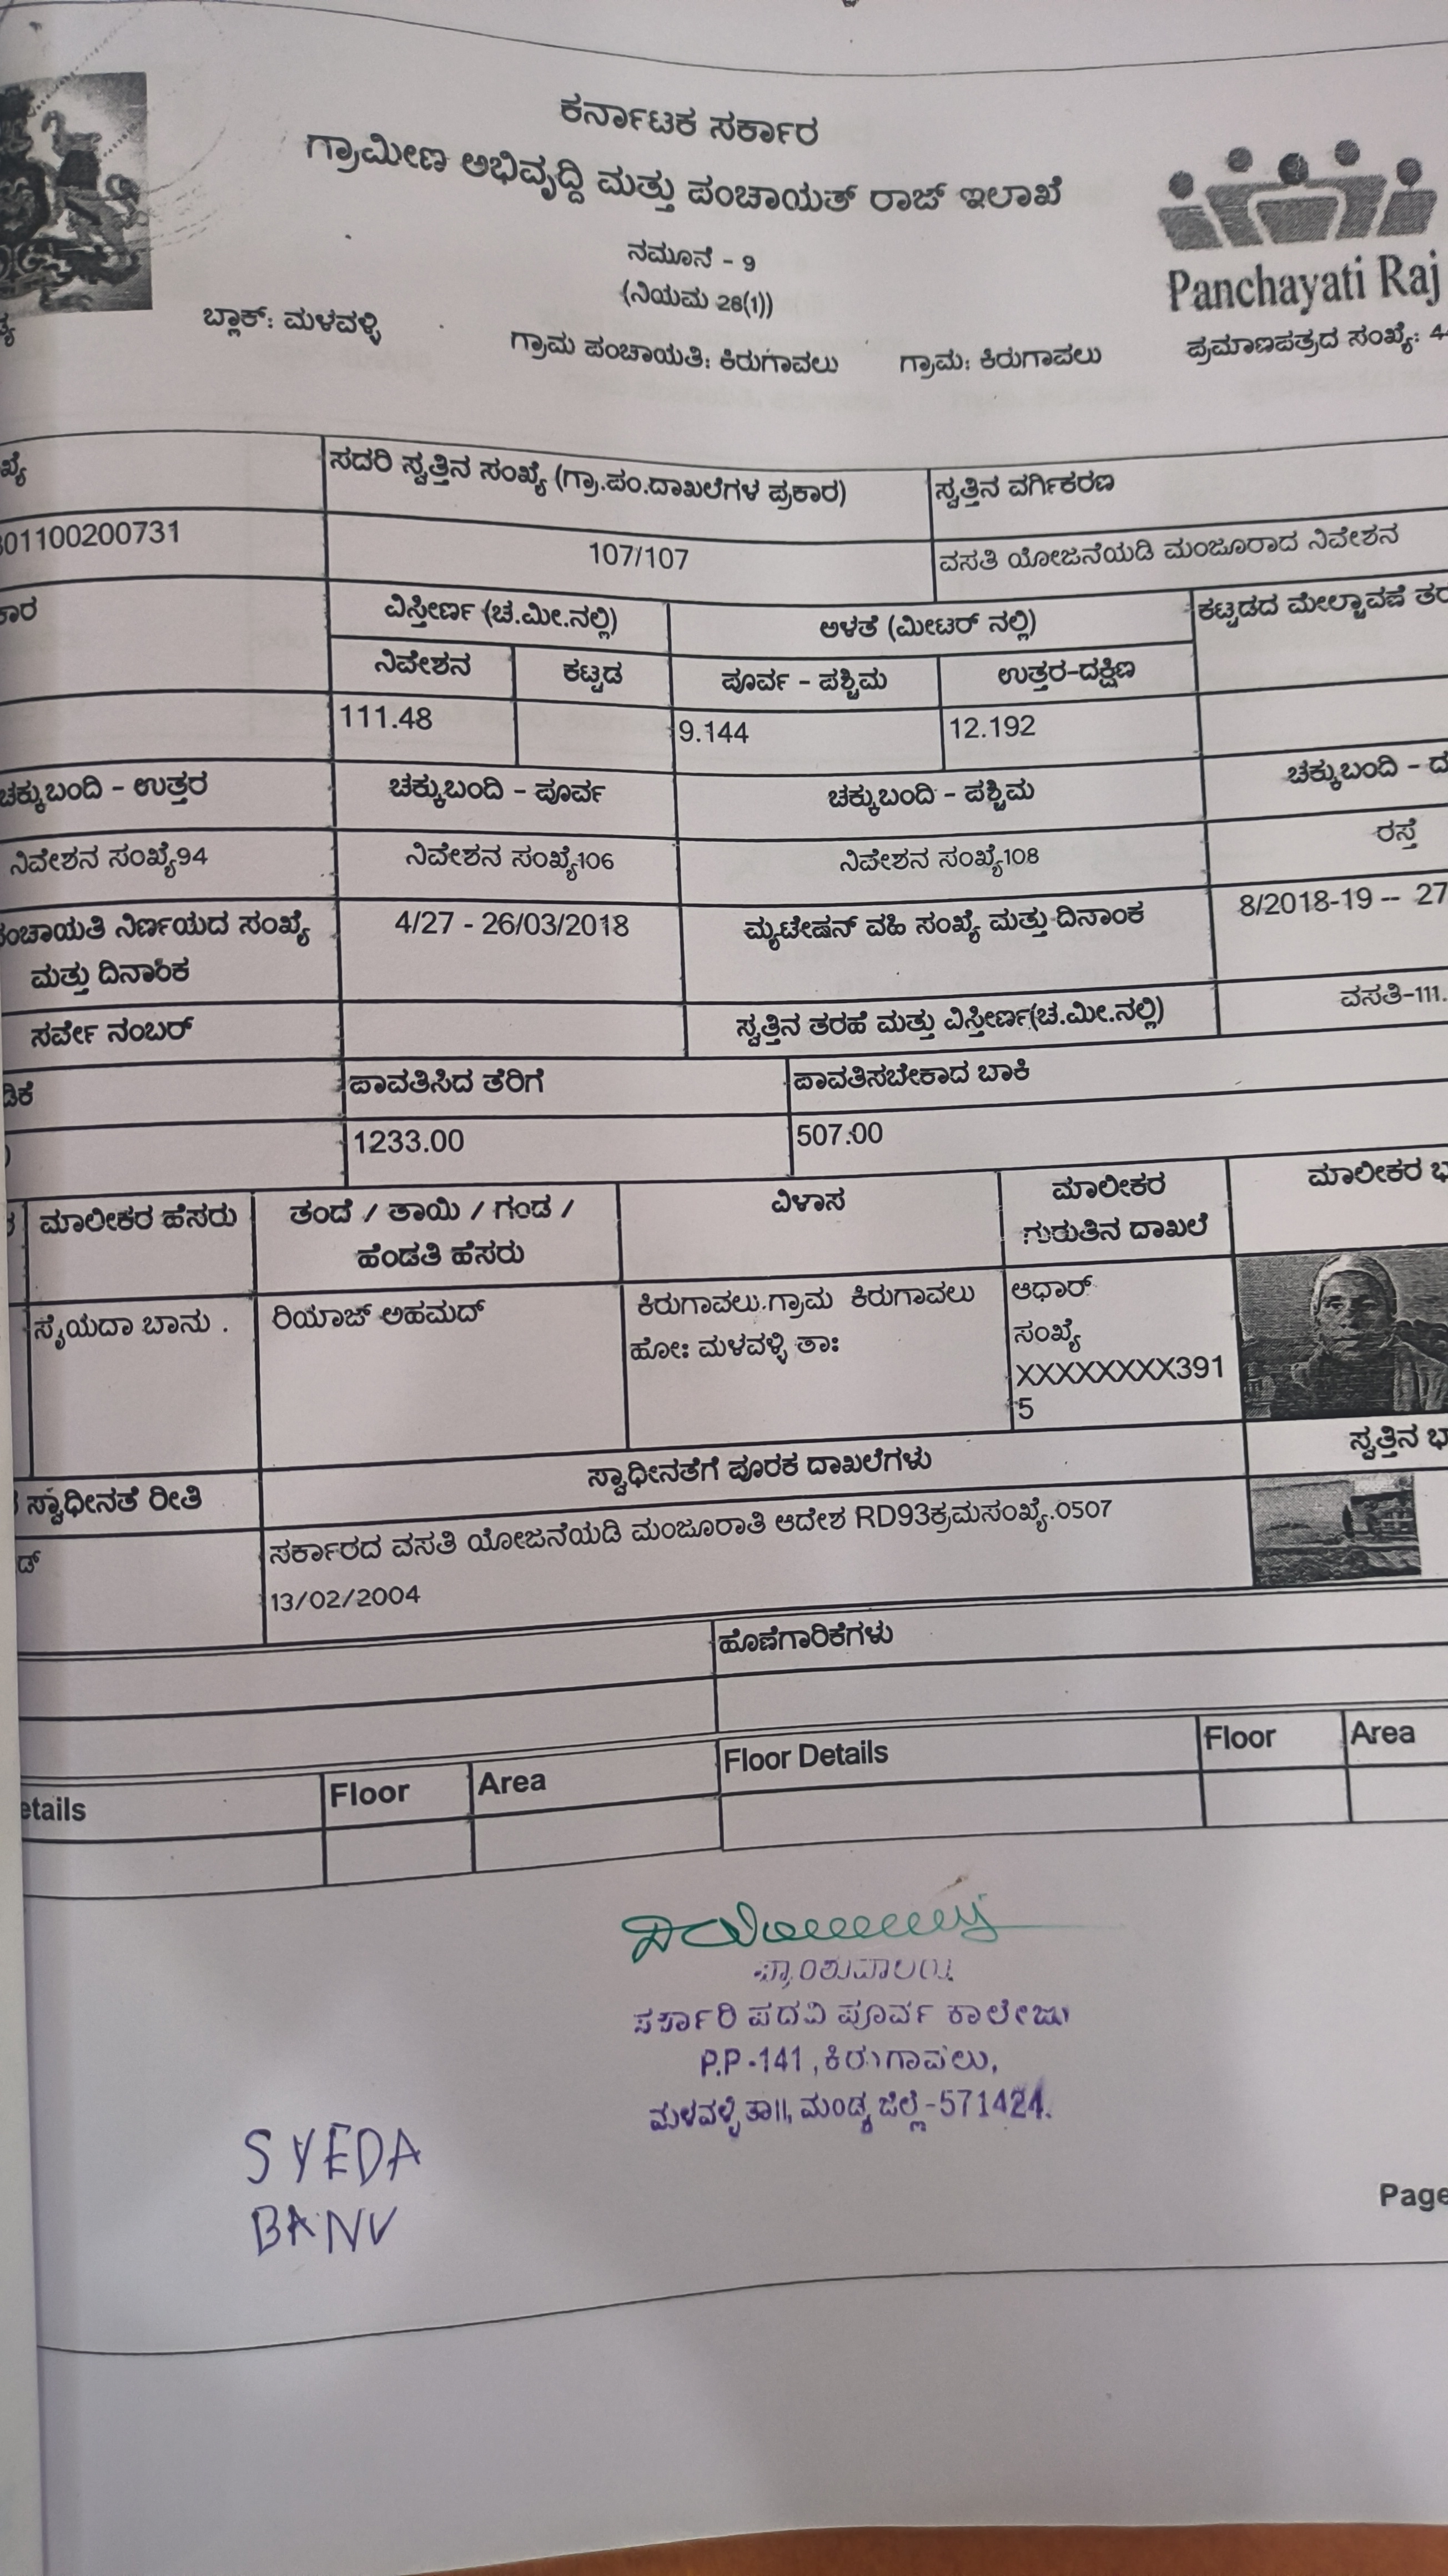 ಕರ್ನಾಟಕ ಸರ್ಕಾರ
ಗ್ರಾಮೀಣ ಅಭಿವೃದ್ಧಿ ಮತ್ತು ಪಂಚಾಯತ್ ರಾಜ್ ಇಲಾಖೆ
ನಮೂನೆ - 9
(ನಿಯಮ 28(1))
Panchayati Raj
ಬ್ಲಾಕ್: ಮಳವಳ್ಳಿ ಗ್ರಾಮ ಪಂಚಾಯತಿ: ಕಿರುಗಾವಲು ಗ್ರಾಮ: ಕಿರುಗಾವಲು ಪ್ರಮಾಣಪತ್ರದ ಸಂಖ್ಯೆ: 4
ಸದರಿ ಸ್ವತ್ತಿನ ಸಂಖ್ಯೆ (ಗ್ರಾ.ಪಂ.ದಾಖಲೆಗಳ ಪ್ರಕಾರ) ಸ್ವತ್ತಿನ ವರ್ಗಿಕರಣ
01100200731 107/107 ವಸತಿ ಯೋಜನೆಯಡಿ ಮಂಜೂರಾದ ನಿವೇಶನ
ವಿಸ್ತೀರ್ಣ (ಚ.ಮೀ.ನಲ್ಲಿ) ಅಳತೆ (ಮೀಟರ್ ನಲ್ಲಿ) ಕಟ್ಟಡದ ಮೇಲ್ಚಾವಣೆ ತರ
ನಿವೇಶನ ಕಟ್ಟಡ ಪೂರ್ವ - ಪಶ್ಚಿಮ ಉತ್ತರ-ದಕ್ಷಿಣ
111.48 9.144 12.192
ಚಕ್ಕುಬಂದಿ - ಉತ್ತರ ಚಕ್ಕುಬಂದಿ - ಪೂರ್ವ ಚಕ್ಕುಬಂದಿ - ಪಶ್ಚಿಮ ಚಕ್ಕುಬಂದಿ - ದ
ನಿವೇಶನ ಸಂಖ್ಯೆ94 ನಿವೇಶನ ಸಂಖ್ಯೆ106 ನಿವೇಶನ ಸಂಖ್ಯೆ108 ರಸ್ತೆ
ಪಂಚಾಯತಿ ನಿರ್ಣಯದ ಸಂಖ್ಯೆ 4/27 - 26/03/2018 ಮ್ಯಟೇಷನ್ ವಹಿ ಸಂಖ್ಯೆ ಮತ್ತು ದಿನಾಂಕ 8/2018-19 -- 27
ಮತ್ತು ದಿನಾಂಕ
ಸರ್ವೇ ನಂಬರ್ ಸ್ವತ್ತಿನ ತರಹೆ ಮತ್ತು ವಿಸ್ತೀರ್ಣ(ಚ.ಮೀ.ನಲ್ಲಿ) ವಸತಿ-111.
ಪಾವತಿಸಿದ ತೆರಿಗೆ ಪಾವತಿಸಬೇಕಾದ ಬಾಕಿ
1233.00 507.00
ಮಾಲೀಕರ ಹೆಸರು ತಂದೆ / ತಾಯಿ / ಗಂಡ / ವಿಳಾಸ ಮಾಲೀಕರ ಮಾಲೀಕರ ಭ
ಹೆಂಡತಿ ಹೆಸರು ಗುರುತಿನ ದಾಖಲೆ
ಸೈಯದಾ ಬಾನು . ರಿಯಾಜ್ ಅಹಮದ್ ಕಿರುಗಾವಲು.ಗ್ರಾಮ ಕಿರುಗಾವಲು ಆಧಾರ್
ಹೋಃ ಮಳವಳ್ಳಿ ತಾಃ ಸಂಖ್ಯೆ
XXXXXXXX391
5
ಸ್ವಾಧೀನತೆ ರೀತಿ ಸ್ವಾಧೀನತೆಗೆ ಪೂರಕ ದಾಖಲೆಗಳು ಸ್ವತ್ತಿನ ಭ
ಸರ್ಕಾರದ ವಸತಿ ಯೋಜನೆಯಡಿ ಮಂಜೂರಾತಿ ಆದೇಶ RD93ಕ್ರಮಸಂಖ್ಯೆ.0507
13/02/2004
ಹೊಣೆಗಾರಿಕೆಗಳು
etails Floor Area Floor Details Floor Area
ಪ್ರಾಂಶುಪಾಲರು
ಸರ್ಕಾರಿ ಪದವಿ ಪೂರ್ವ ಕಾಲೇಜು
P.P-141, ಕಿರುಗಾವಲು,
ಮಳವಳ್ಳಿ ತಾ||, ಮಂಡ್ಯ ಜಿಲ್ಲೆ-571424.
SYEDA
BANU
Page